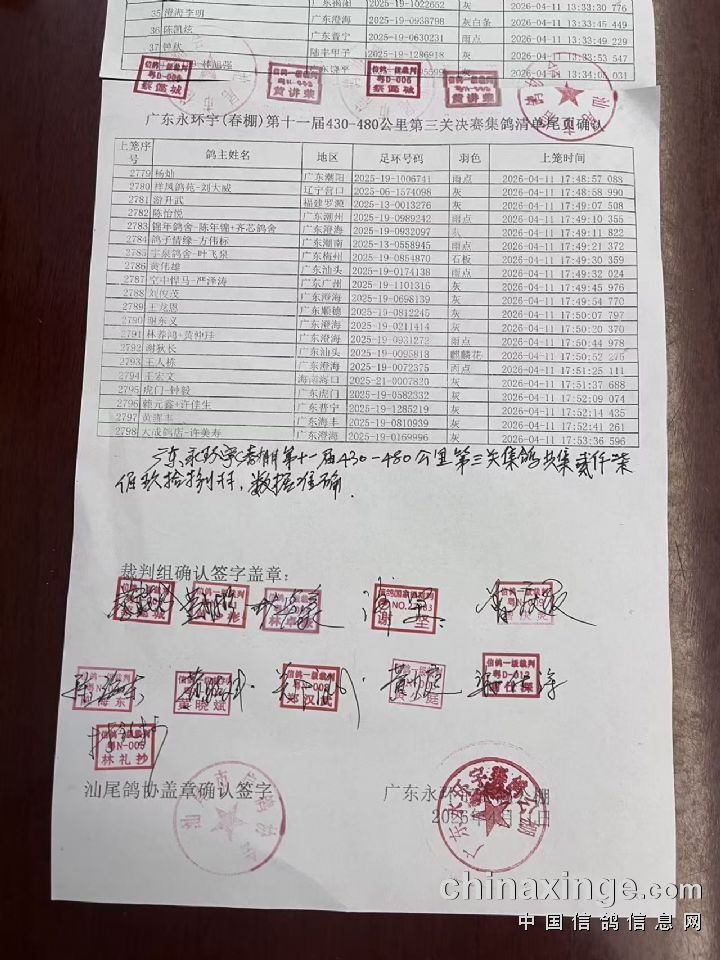 广东揭阳 2025-19-1022652 灰 2026-04-11 13:33:30 776
35 澄海李明 广东澄海 2025-19-0938798 灰白条 2026-04-11 13:33:45 449
36 陈凯炫 广东普宁 2025-19-0630231 雨点 2026-04-11 13:33:49 229
37 钟秋 陆丰甲子 2025-19-1286918 灰 2026-04-11 13:33:53 547
林旭强 广东饶平 灰 2026-04-11 13:34:05 031
信鸽一级裁判 粤D-006 蔡懿城
信鸽一级裁判 黄讲荣
信鸽一级裁判 粤D-006 蔡懿城
信鸽一级裁判 黄讲荣
广东永环宇(春棚)第十一届430-480公里第三关决赛集鸽清单尾页确认
上笼序号 鸽主姓名 地区 足环号码 羽色 上笼时间
2779 杨灿 广东潮阳 2025-19-1006741 雨点 2026-04-11 17:48:57 088
2780 祥凤鸽苑-刘大威 辽宁营口 2025-06-1574098 灰 2026-04-11 17:48:58 990
2781 游升武 福建罗源 2025-13-0013276 灰 2026-04-11 17:49:07 508
2782 陈怡悦 广东潮州 2025-19-0989242 雨点 2026-04-11 17:49:10 355
2783 锦年鸽舍-陈年锦+齐芯鸽舍 广东澄海 2025-19-0932097 灰 2026-04-11 17:49:11 822
2784 鸽子情缘-方伟标 广东潮南 2025-13-0558945 雨点 2026-04-11 17:49:21 372
2785 宇泉鸽舍-叶飞泉 广东梅州 2025-19-0854870 石板 2026-04-11 17:49:30 359
2786 黄伟雄 广东汕头 2025-19-0174138 雨点 2026-04-11 17:49:32 024
2787 空中悍马-严泽涛 广东广州 2025-19-1101316 灰 2026-04-11 17:49:45 976
2788 刘俊茂 广东澄海 2025-19-0698139 灰 2026-04-11 17:49:54 770
2789 王龙恩 广东顺德 2025-19-0812245 灰 2026-04-11 17:50:07 797
2790 谢东义 广东澄海 2025-19-0211414 灰 2026-04-11 17:50:20 370
2791 林养鸿+黄仲玤 广东澄海 2025-19-0931272 雨点 2026-04-11 17:50:44 978
2792 谢狄长 广东汕头 2025-19-0095818 麒麟花 2026-04-11 17:50:52 275
2793 王人栋 广东澄海 2025-19-0072375 雨点 2026-04-11 17:51:25 111
2794 王宏文 海南海口 2025-21-0007820 灰 2026-04-11 17:51:37 688
2795 虎门-钟毅 广东虎门 2025-19-0582332 灰 2026-04-11 17:52:09 074
2796 赖元鑫+许佳生 广东普宁 2025-19-1285219 灰 2026-04-11 17:52:14 435
2797 黄湃丰 广东海丰 2025-19-0810939 灰 2026-04-11 17:52:41 261
2798 大成鸽店-许美寿 广东澄海 2025-19-0169996 灰 2026-04-11 17:53:36 596
广东永环宇春棚第十一届430-480公里第三关集鸽共集贰仟柒
佰玖拾捌羽，数据准确.
裁判组确认签字盖章:
信鸽国家级裁判 谢坚
信鸽一级裁判 黄晓斌
信鸽一级裁判 郑汉武
信鸽一级裁判 粤N-005 林礼抄
汕尾鸽协盖章确认签字
广东永环宇
chinaxinge.com
中国信鸽信息网